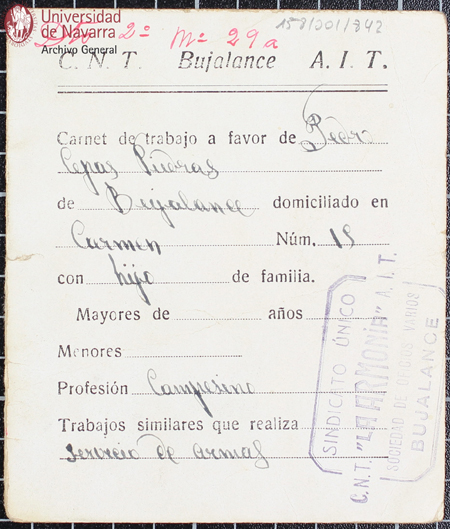 Universidad
de Navarra
Archivo General
158/001/842
2º Mº 29 a
C. N. T. Bujalance A. I. T.
Carnet de trabajo a favor de Pedro
Cepas
de Bujalance domiciliado en
Carmen Núm. 18
con hijo de familia.
Mayores de años
Menores
Profesión Campesino
Trabajos similares que realiza
servicio de armas
SINDICATO ÚNICO
C.N.T. "LA ARMONÍA" A.I.T.
SOCIEDAD DE OFICIOS VARIOS
BUJALANCE